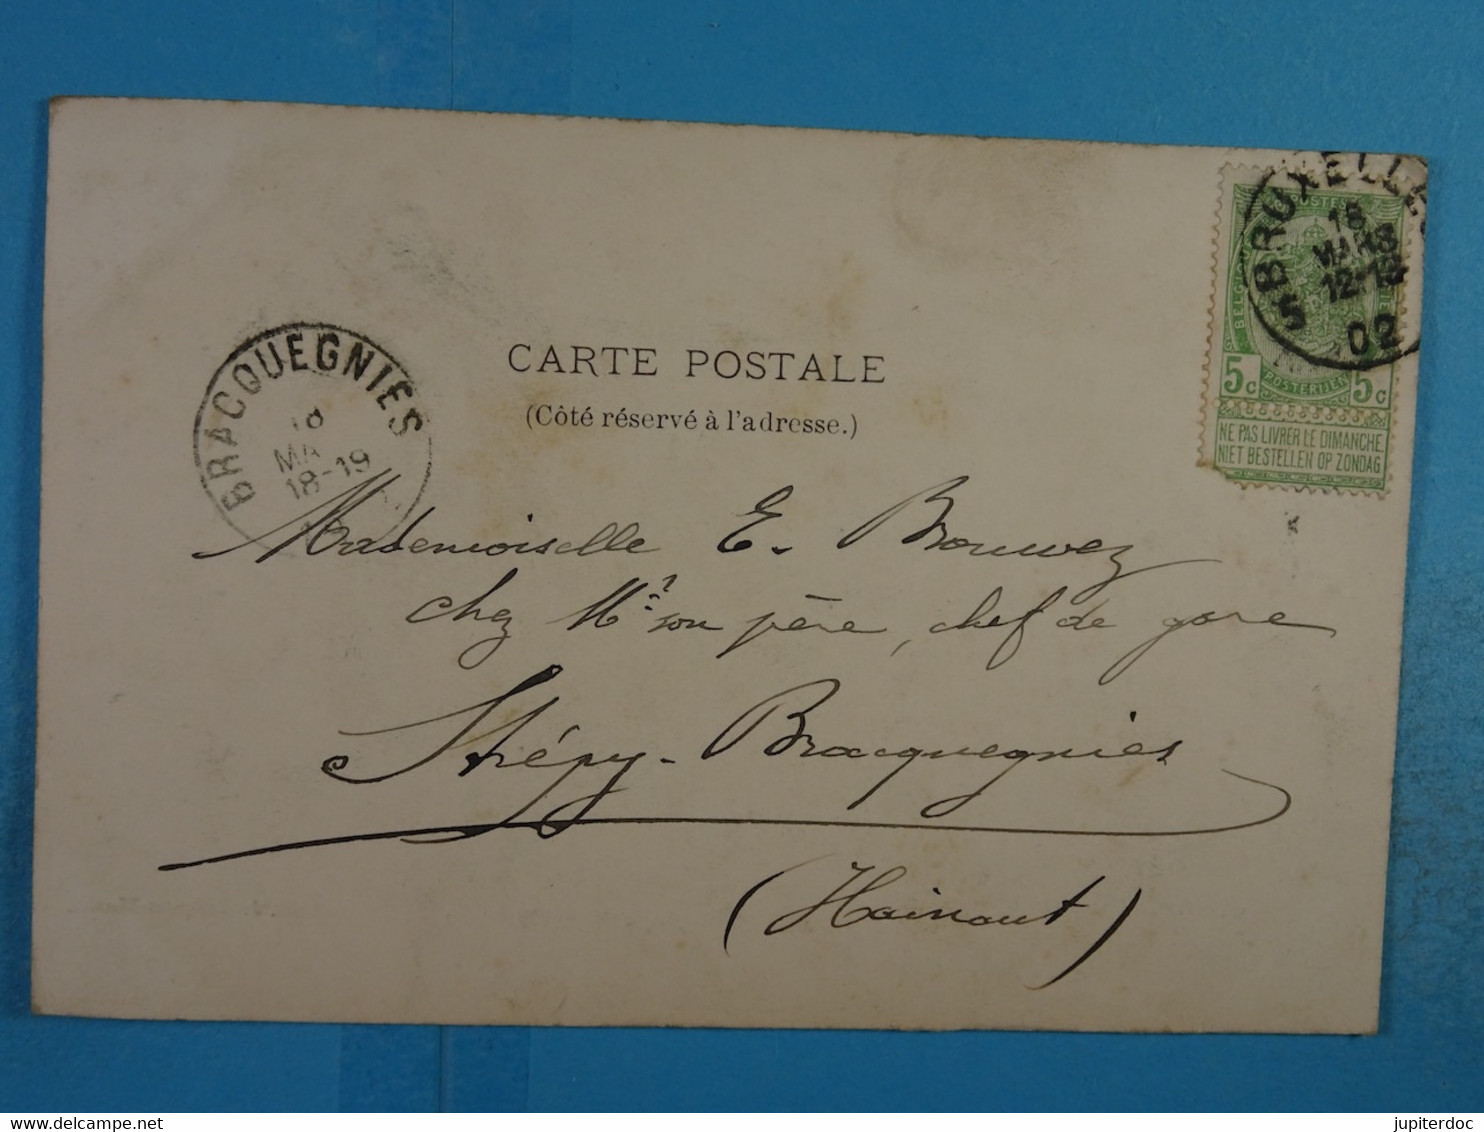 CARTE POSTALE
(Côté réservé à l'adresse.)
BRACQUEGNIES
18
MA
18-19
5 BRUXELLES
18
MARS
12-13
02
5c POSTERIJEN 5c
NE PAS LIVRER LE DIMANCHE
NIET BESTELLEN OP ZONDAG
Mademoiselle E. Brouwez
chez Mr. son père, chef de gare
Strépy-Bracquegnies
(Hainaut)
delcampe.net
jupiterdoc